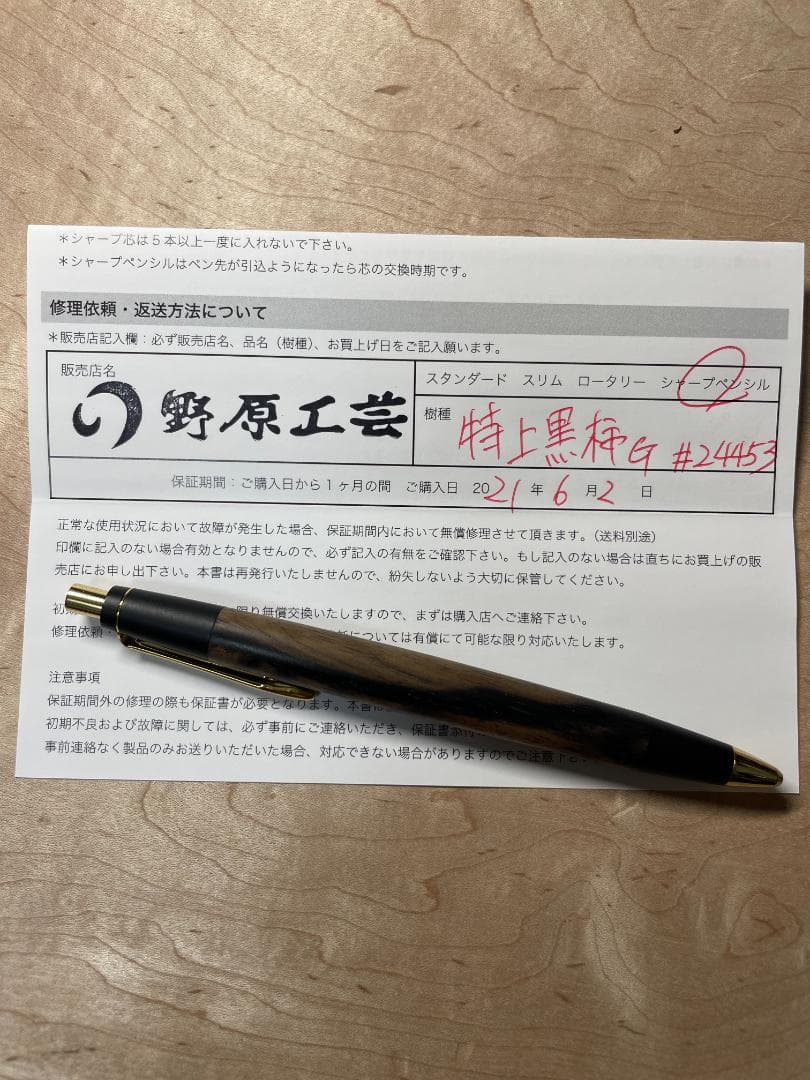 ＊シャープ芯は5本以上一度に入れないで下さい。
＊シャープペンシルはペン先が引込ようになったら芯の交換時期です。
修理依頼・返送方法について
＊販売店記入欄：必ず販売店名、品名（樹種）、お買上げ日をご記入願います。
販売店名
野原工芸
スタンダード スリム ロータリー シャープペンシル
樹種 特上黒柿G #24453
保証期間：ご購入日から1ヶ月の間 ご購入日 2021年6月2日
正常な使用状況において故障が発生した場合、保証期間内において無償修理させて頂きます。（送料別途）
印欄に記入のない場合有効となりませんので、必ず記入の有無をご確認下さい。もし記入のない場合は直ちにお買上げの販
売店にお申し出下さい。本書は再発行いたしませんので、紛失しないよう大切に保管してください。
初期 限り無償交換いたしますので、まずは購入店へご連絡下さい。
修理依頼・ については有償にて可能な限り対応いたします。
注意事項
保証期間外の修理の際も保証書が必要となります。本書は
初期不良および故障に関しては、必ず事前にご連絡いただき、保証書添付
事前連絡なく製品のみお送りいただいた場合、対応できない場合がありますのでご注意下さ